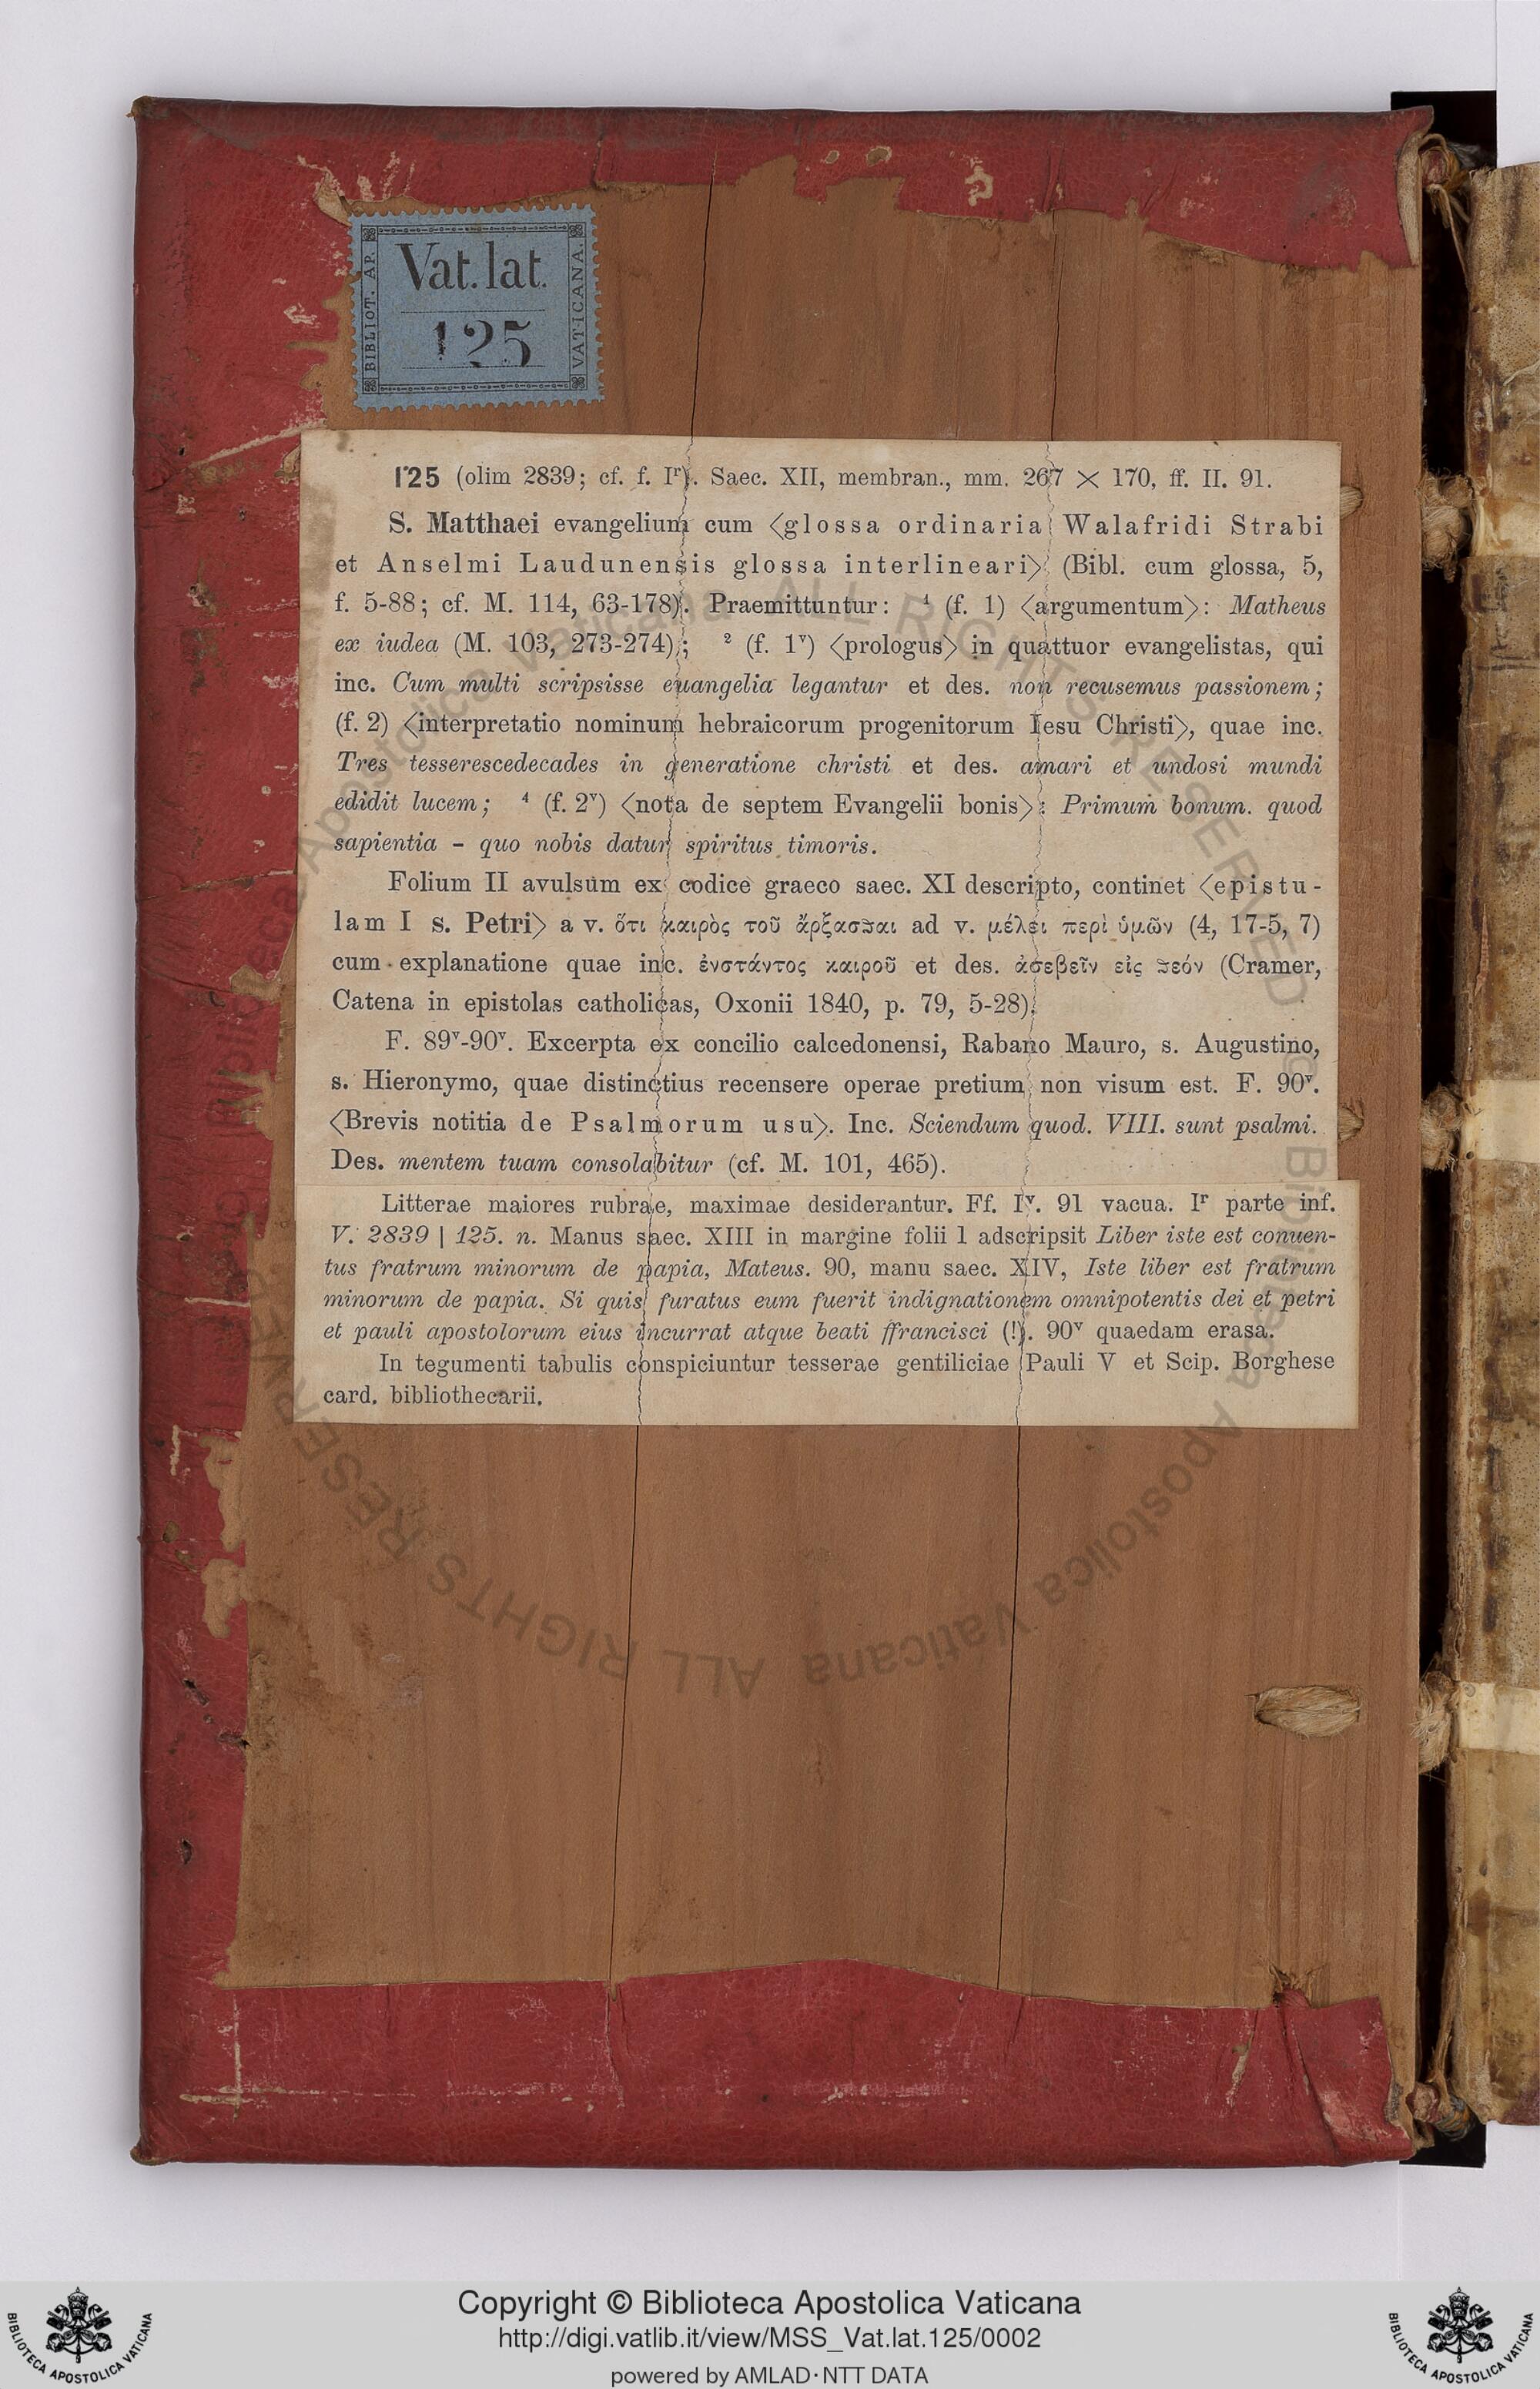 BIBLIOT. AP. VATICANA.
Vat. lat.
125
125 (olim 2839; cf. f. Iʳ). Saec. XII, membran., mm. 267 × 170, ff. II. 91.
S. Matthaei evangelium cum ⟨glossa ordinaria Walafridi Strabi
et Anselmi Laudunensis glossa interlineari⟩ (Bibl. cum glossa, 5,
f. 5-88; cf. M. 114, 63-178). Praemittuntur: ¹ (f. 1) ⟨argumentum⟩: Matheus
ex iudea (M. 103, 273-274); ² (f. 1ᵛ) ⟨prologus⟩ in quattuor evangelistas, qui
inc. Cum multi scripsisse euangelia legantur et des. non recusemus passionem;
(f. 2) ⟨interpretatio nominum hebraicorum progenitorum Iesu Christi⟩, quae inc.
Tres tesserescedecades in generatione christi et des. amari et undosi mundi
edidit lucem; ⁴ (f. 2ᵛ) ⟨nota de septem Evangelii bonis⟩: Primum bonum. quod
sapientia - quo nobis datur spiritus timoris.
Folium II avulsum ex codice graeco saec. XI descripto, continet ⟨epistu-
lam I s. Petri⟩ a v. ὅτι καιρὸς τοῦ ἄρξασθαι ad v. μέλει περὶ ὑμῶν (4, 17-5, 7)
cum explanatione quae inc. ἐνστάντος καιροῦ et des. ἀσεβεῖν εἰς θεόν (Cramer,
Catena in epistolas catholicas, Oxonii 1840, p. 79, 5-28).
F. 89ᵛ-90ᵛ. Excerpta ex concilio calcedonensi, Rabano Mauro, s. Augustino,
s. Hieronymo, quae distinctius recensere operae pretium non visum est. F. 90ᵛ.
⟨Brevis notitia de Psalmorum usu⟩. Inc. Sciendum quod. VIII. sunt psalmi.
Des. mentem tuam consolabitur (cf. M. 101, 465).
Litterae maiores rubrae, maximae desiderantur. Ff. Iᵛ. 91 vacua. Iʳ parte inf.
V. 2839 | 125. n. Manus saec. XIII in margine folii 1 adscripsit Liber iste est conuen-
tus fratrum minorum de papia, Mateus. 90, manu saec. XIV, Iste liber est fratrum
minorum de papia. Si quis furatus eum fuerit indignationem omnipotentis dei et petri
et pauli apostolorum eius incurrat atque beati ffrancisci (!). 90ᵛ quaedam erasa.
In tegumenti tabulis conspiciuntur tesserae gentiliciae Pauli V et Scip. Borghese
card. bibliothecarii.
© Biblioteca Apostolica Vaticana ALL RIGHTS RESERVED
Biblioteca Apostolica Vaticana ALL RIGHTS RESERVED
Copyright © Biblioteca Apostolica Vaticana
http://digi.vatlib.it/view/MSS_Vat.lat.125/0002
powered by AMLAD·NTT DATA
BIBLIOTECA APOSTOLICA VATICANA
BIBLIOTECA APOSTOLICA VATICANA